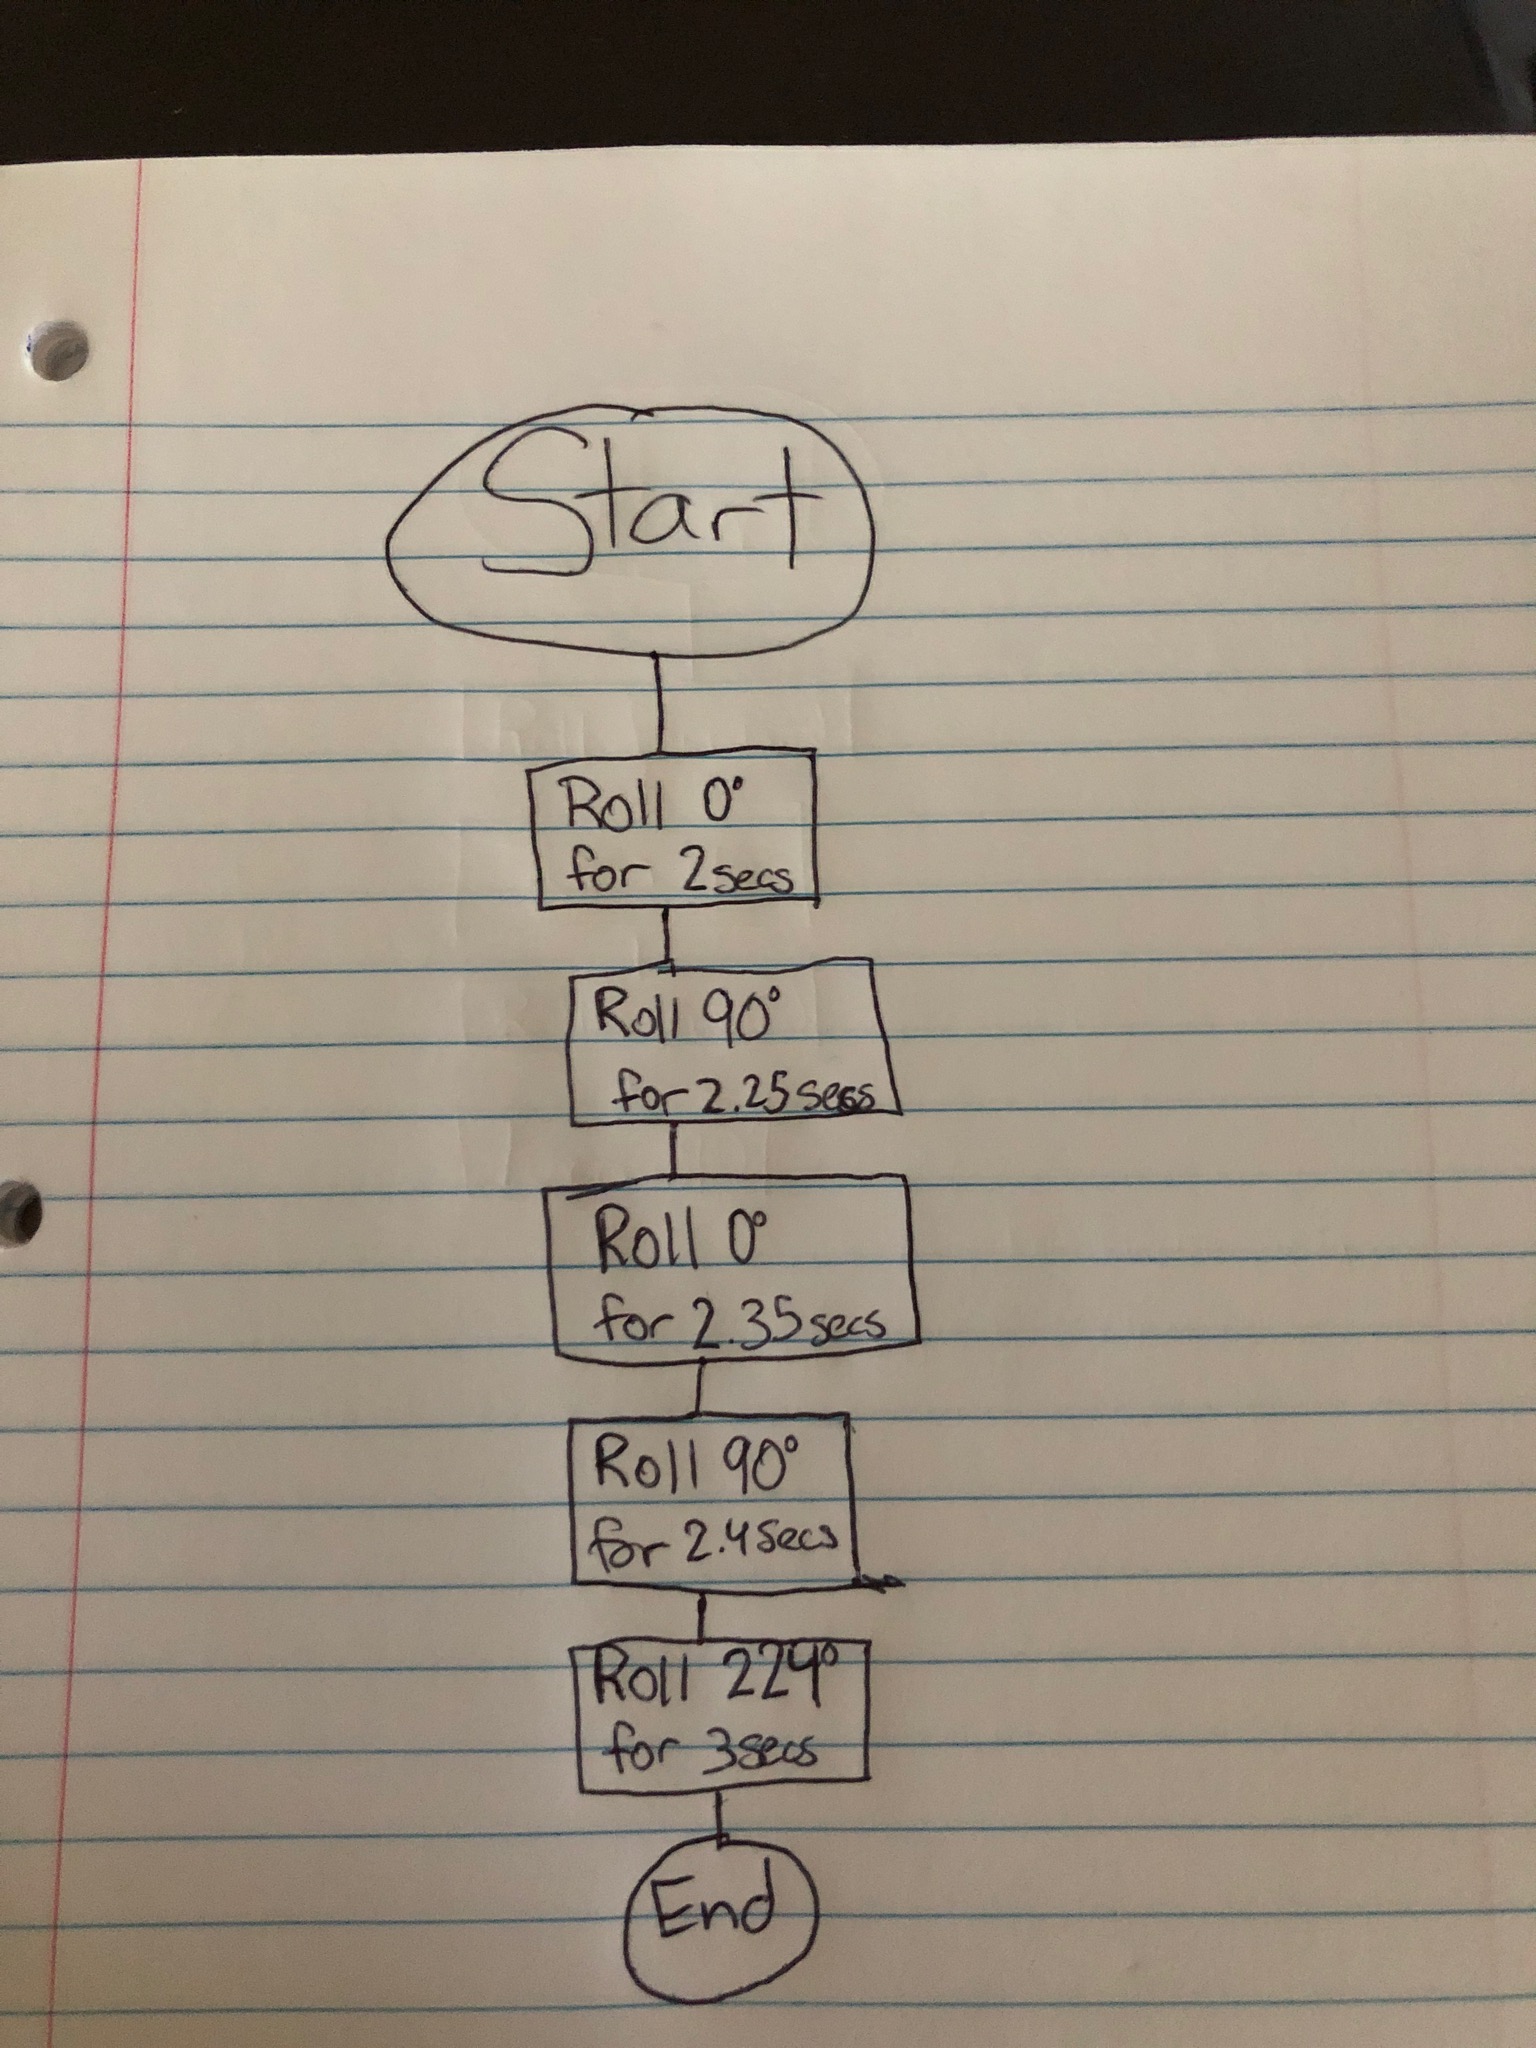 Start
Roll 0°
for 2secs
Roll 90°
for 2.25secs
Roll 0°
for 2.35secs
Roll 90°
for 2.4secs
Roll 224°
for 3secs
End